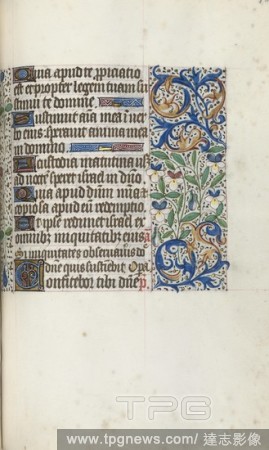 Quia apud te propiciatio
est et propter legem tuam sus
tinui te domine
Sustinuit aīa mea ī ver
bo eius speravit anima mea
in domino
A custodia matutina us
ad noctē speret israel in dño
Quia apud dñm mīa et
copiosa apud eū redemptio
Et ipse redimet israel ex
omnibz iniquitatibz eius a
Si iniquitates observaveris do
dñe quis sustinebit
Confitebor tibi dñe p̄
TPG
www.tpgnews.com / 達志影像